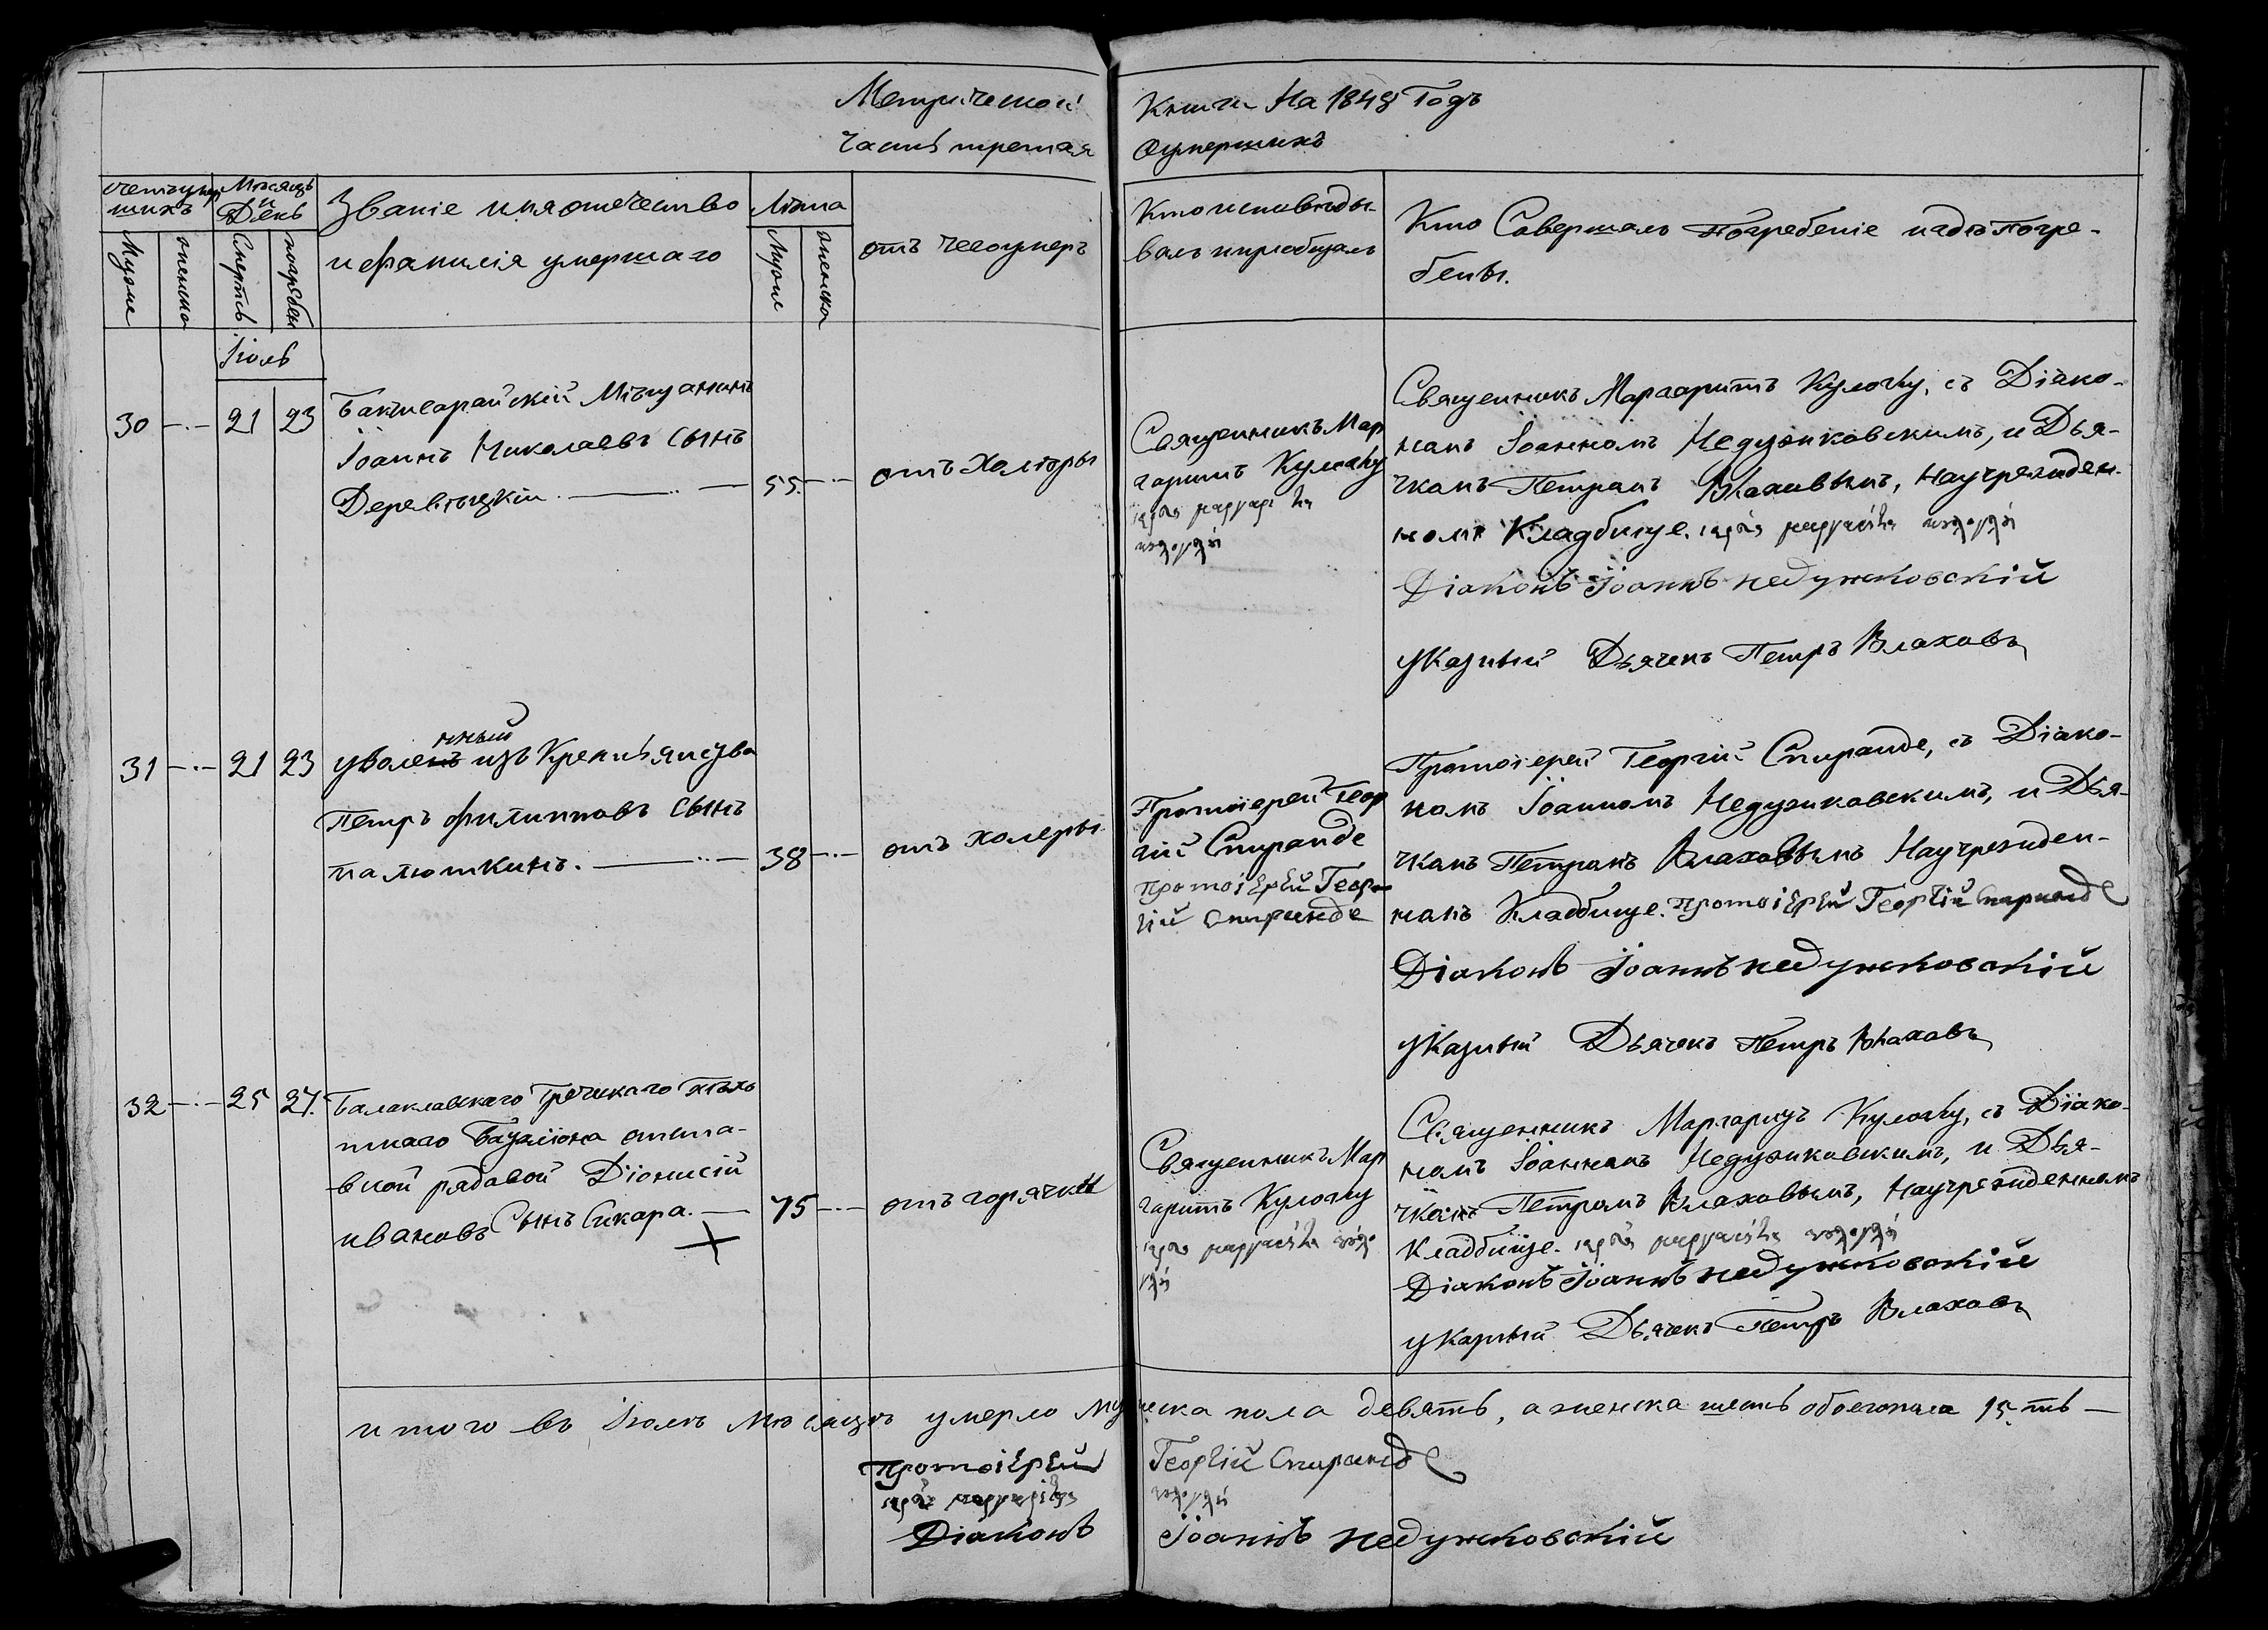 Метрической Книги На 1848 Годъ
Часть третая Оумершихъ
счетъ умер
шихъ
Мужеска
женска
Мѣсяцъ
и
День
Смерть
погребен
Званіе имя отечество
и фамилія умершаго
Лѣта
Мужс
женска
отъ чего умеръ
Кто исповѣды-
валъ и приобщалъ
Кто Совершалъ Погребеніе и гдѣ погре-
бены.
Іюль
30 21 23
Бакчисарайскій Мѣщанинъ
Іоаннъ Николаевъ Сынъ
Деревицкій
55
отъ Холеры
Священникъ Мар
гаритъ Кулоглу
ιερεύς μαργαρίτης
κουλογλού
Священникъ Маргаритъ Кулоглу, съ Діако-
номъ Іоанномъ Недужковскимъ, и Дья-
чкомъ Петромъ Влаховымъ, На учрежден-
номъ Кладбище. ιερεύς μαργαρίτης κουλογλού
Діаконъ Іоаннъ недужковскій
указный Дьячекъ Петръ Влаховъ
31 21 23
нный
уволенъ изъ Крестьянства
Петръ филипповъ Сынъ
палюткинъ.
38
отъ холеры
Протоіерей Геор
гій Спиранде
протоіерей Геор
гій Спиранде
Протоіерей Георгій Спиранде, съ Діако-
номъ Іоанномъ Недужковскимъ, и Дья-
чкомъ Петромъ Влаховымъ На учрежден-
номъ Кладбище. протоіерей Георгій Спиранде
Діаконъ Іоаннъ недужковскій
указный Дьячекъ Петръ Влаховъ
32 25 27.
Балаклавскаго Греческаго пѣхо
тнаго Баталіона отста-
вной рядовой Діонисій
ивановъ Сынъ Сикара.
75
отъ горячки
Священникъ Мар
гаритъ Кулоглу
ιερεύς μαργαρίτης κουλο
γλού
Священникъ Маргаритъ Кулоглу, съ Діако-
номъ Іоанномъ Недужковскимъ, и Дья-
чкомъ Петромъ Влаховымъ, На учрежденномъ
Кладбище. ιερεύς μαργαρίτης κουλογλού
Діаконъ Іоаннъ недужковскій
указный Дьячекъ Петръ Влаховъ
итого въ Іюлѣ Мѣсяцѣ умерло мужеска пола девять, а женска шесть обоего пола 15.ть
протоіерей Георгій Спиранде
ιερεύς μαργαρίτης κουλογλού
Діаконъ Іоаннъ недужковскій